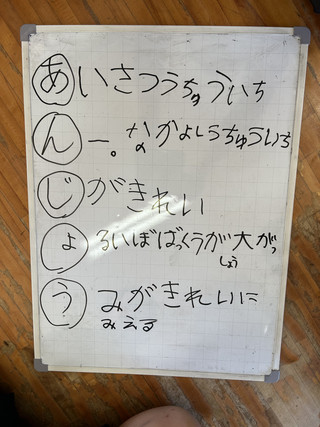 あいさつうちゅういち
ん一。なかよしうちゅういち
じがきれい
よるいぼばっくうが大がっ
しょう
うみがきれいに
みえる